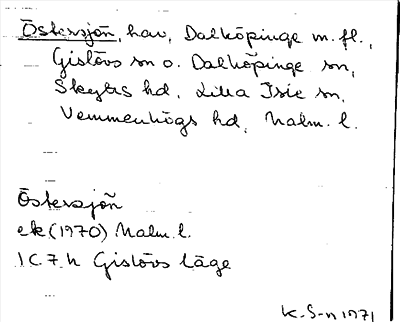 Östersjön, hav, Dalköpinge m.fl.,
Gislövs sn o. Dalköpinge sn,
Skytts hd, Lilla Isie sn,
Vemmenhögs hd, Malm. l.
Östersjön
ek (1970) Malm. l.
1C.7.h Gislövs läge
K.S-n 1971